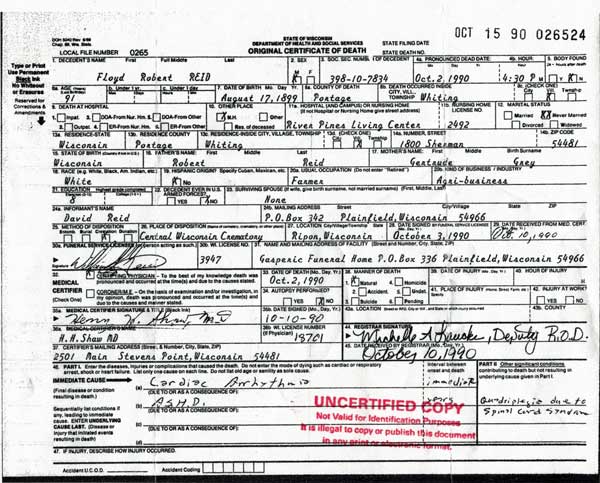 DOH 5040 Rev. 9/89
STATE OF WISCONSIN
DEPARTMENT OF HEALTH AND SOCIAL SERVICES
ORIGINAL CERTIFICATE OF DEATH
STATE FILING DATE
OCT 15 90 026524
STATE DEATH NO.
LOCAL FILE NUMBER 0265
Type or Print
Use Permanent
Black Ink
No Whiteout
or Erasures
Reserved for
Corrections &
Amendments
1. DECEDENT'S NAME First Full Middle Last
Floyd Robert REID
2. SEX
M F
3. SOC. SEC. NUMB.
398-10-7834
4a. PRONOUNCED DEAD DATE
Oct.2,1990
4b. HOUR
4:30 PM
5. BODY FOUND
24 - Hours after death
Y N
6a. AGE b. Under 1 yr. c. Under 1 day
7. DATE OF BIRTH (Mo. Day, Yr.)
August 17,1899
8a. COUNTY OF DEATH
Portage
8b. DEATH OCCURRED INSIDE CITY, VILL, TOWNSHIP
Whiting
8c. (CHECK ONE)
9. DEATH AT HOSPITAL
1. Inpat. 3. DOA-From Nur. Hm. 5. DOA-From Other
2. Outpat. 4. ER-From Nur. Hm. 6. ER-From Other
10. OTHER PLACE
N.H. Other
Res. of deceased
11a. HOSPITAL (AND CAMPUS) OR NURSING HOME
(If not Hospital or Nursing Home give street address)
River Pines Living Center
11b. NURSING HOME LICENSE NO.
2492
12. MARITAL STATUS
Married Never Married
Divorced Widowed
13a. RESIDENCE-STATE
Wisconsin
13b. RESIDENCE COUNTY
Portage
13c. RESIDENCE-CITY, VILLAGE, TOWNSHIP
Whiting
13d. (CHECK ONE)
City Vill. Township
14a. NUMBER, STREET
1800 Sherman
14b. ZIP CODE
54481
15. STATE OF BIRTH
Wisconsin
16. FATHER'S NAME First Middle Last
Robert Reid
17. MOTHER'S NAME First Middle
Gertrude Grey
18. RACE (e.g. White, Black, Am. Indian, etc.)
White
19. HISPANIC ORIGIN? (Specify Cuban, Mexican, etc.)
Yes No
20a. USUAL OCCUPATION (Do not enter "Retired")
Farmer
20b. KIND OF BUSINESS / INDUSTRY
Agri-business
21. EDUCATION
8
22. DECEDENT EVER IN U.S. ARMED FORCES?
23. SURVIVING SPOUSE (If wife, give birth surname, not married surname) (First, Middle, Last)
None
24a. INFORMANT'S NAME
David Reid
24b. MAILING ADDRESS Street City/Village State ZIP
P.O.Box 342 Plainfield,Wisconsin 54966
25. METHOD OF DISPOSITION
26. PLACE OF DISPOSITION
Central Wisconsin Crematory
27. LOCATION City/Village/Township State
Ripon,Wisconsin
28. DATE SIGNED
October 3,1990
29. DATE RECEIVED FROM MED. CERT.
Oct. 10, 1990
Signature
30b. WI LICENSE NO.
3947
31. NAME AND MAILING ADDRESS OF FACILITY (Street and Number, City, State, ZIP)
Gasperic Funeral Home P.O.Box 336 Plainfield,Wisconsin 54966
32.
MEDICAL CERTIFIER
(Check One)
CERTIFYING PHYSICIAN - To the best of my knowledge death was pronounced and occurred at the time(s) and due to the causes stated.
CORONER/M.E. - On the basis of examination and/or investigation, in my opinion, death was pronounced and occurred at the time(s) and due to the causes and manner stated.
33. DATE OF DEATH (Mo. Day, Yr.)
Oct.2,1990
34. AUTOPSY PERFORMED?
Yes No
38. MANNER OF DEATH
1. Natural 4. Homicide
2. Accident 5. Undet.
3. Suicide 6. Pending
39. DATE OF INJURY (Mo. Day, Yr.)
40. HOUR OF INJURY
41. PLACE OF INJURY (Home, Farm, Street, etc.) (Specify)
42. INJURY AT WORK?
43b. COUNTY
35a. MEDICAL CERTIFIER'S SIGNATURE & TITLE (Black Ink)
35b. DATE SIGNED (Mo. Day, Yr.)
10-10-90
36a. MEDICAL CERTIFIER'S NAME
H.H.Shaw MD
36b. WI LICENSE NUMBER OF (Physician)
18701
44. REGISTRAR SIGNATURE
Deputy R.O.D.
45. DATE RECEIVED BY REGISTRAR (Mo. Day, Yr.)
October 10,1990
37. CERTIFIER'S MAILING ADDRESS (Street, & Number, City, State, ZIP)
2501 Main Stevens Point,Wisconsin 54481
46. PART I. Enter the diseases, injuries or complications that caused the death. Do not enter the mode of dying such as cardiac or respiratory arrest, shock or heart failure. List only one cause on each line. Do not list old age or sanility as sole cause.
Interval between onset and death
PART II Other significant conditions contributing to death but not resulting in underlying cause given in Part I.
IMMEDIATE CAUSE
(Final disease or condition resulting in death)
(a) Cardiac Arrhythmia
immediate
DUE TO OR AS A CONSEQUENCE OF:
Sequentially list conditions if any, leading to immediate cause. ENTER UNDERLYING CAUSE LAST. (Disease or injury that initiated events resulting in death)
(b) A.S.H.D.
years
(c) DUE TO OR AS A CONSEQUENCE OF:
(d) DUE TO OR AS A CONSEQUENCE OF:
Quadriplegia due to
Spinal Cord Syndrome
UNCERTIFIED COPY
Not Valid for Identification Purposes
It is illegal to copy or publish this document
in any print or electronic format.
47. IF INJURY, DESCRIBE HOW INJURY OCCURRED.
Accident U.C.O.D. Accident Coding